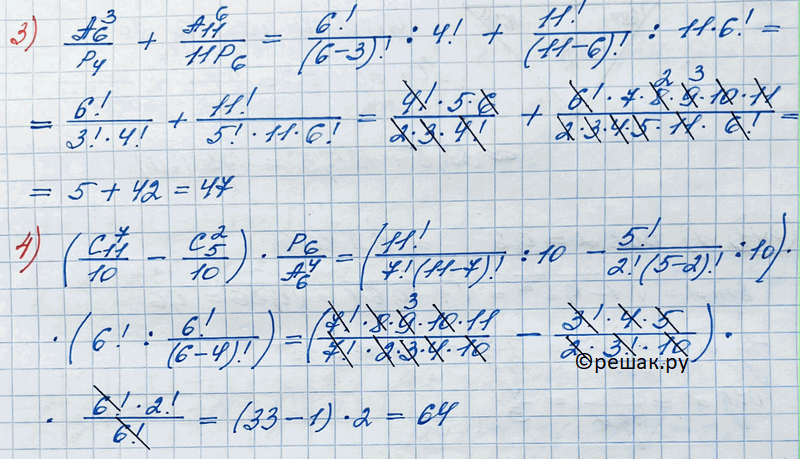 3) A₆³/P₄ + A₁₁⁶/11P₆ = 6!/(6-3)! : 4! + 11!/(11-6)! : 11·6! =
= 6!/3!·4! + 11!/5!·11·6! = 4!·5·6/2·3·4! + 6!·7·8²·9³·10·11/2·3·4·5·11·6! =
= 5 + 42 = 47
4) (C₁₁⁷/10 − C₅²/10) · P₆/A₆⁴ = (11!/7!(11-7)! : 10 − 5!/2!(5-2)! : 10) ·
· (6! : 6!/(6-4)!) = (7!·8·9³·10·11/7!·2·3·4·10 − 3!·4·5/2·3!·10) ·
©решак.ру
· 6!·2!/6! = (33−1)·2 = 64